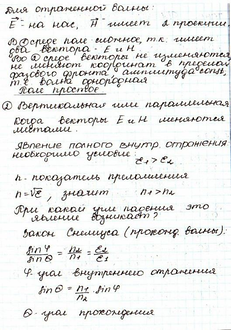 Для отраженной волны:
Е - на нас, Н имеет 2 проекции.
В ① среде поле сложное, т.к. имеет
оба вектора - Е и Н
Во ② среде векторы не изменяются,
не меняют координат в пределах
фазового фронта амплитуда
т.е волна однородная
Поле простое
② Вертикальная или параллельная
Когда векторы Е и Н меняются
местами.
Явление полного внутр. отражения
необходимо условие ε₁ > ε₂
n - показатель приломления
n = √ε, значит n₁ > n₂
При каком угле падения это
явление возникает?
Закон Снелиуса (проход. волны):
sin φ / sin θ = n₂ / n₁ = ε₂ / ε₁
φ угол внутреннего отражения
sin θ = n₁ / n₂ · sin φ
θ - угол прохождения